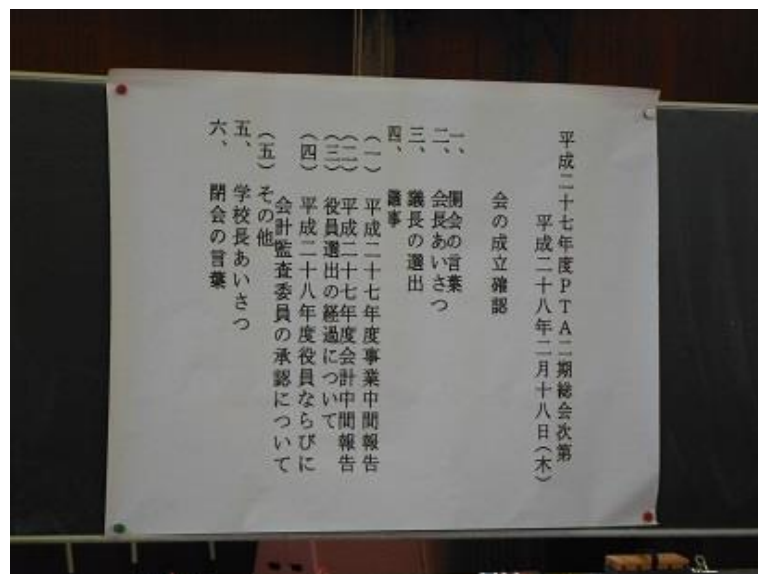 平成二十七年度PTA二期総会次第
平成二十八年二月十八日(木)
会の成立確認
一、開会の言葉
二、会長あいさつ
三、議長の選出
四、議事
(一)平成二十七年度事業中間報告
(二)平成二十七年度会計中間報告
(三)役員選出の経過について
(四)平成二十八年度役員ならびに
会計監査委員の承認について
(五)その他
五、学校長あいさつ
六、閉会の言葉